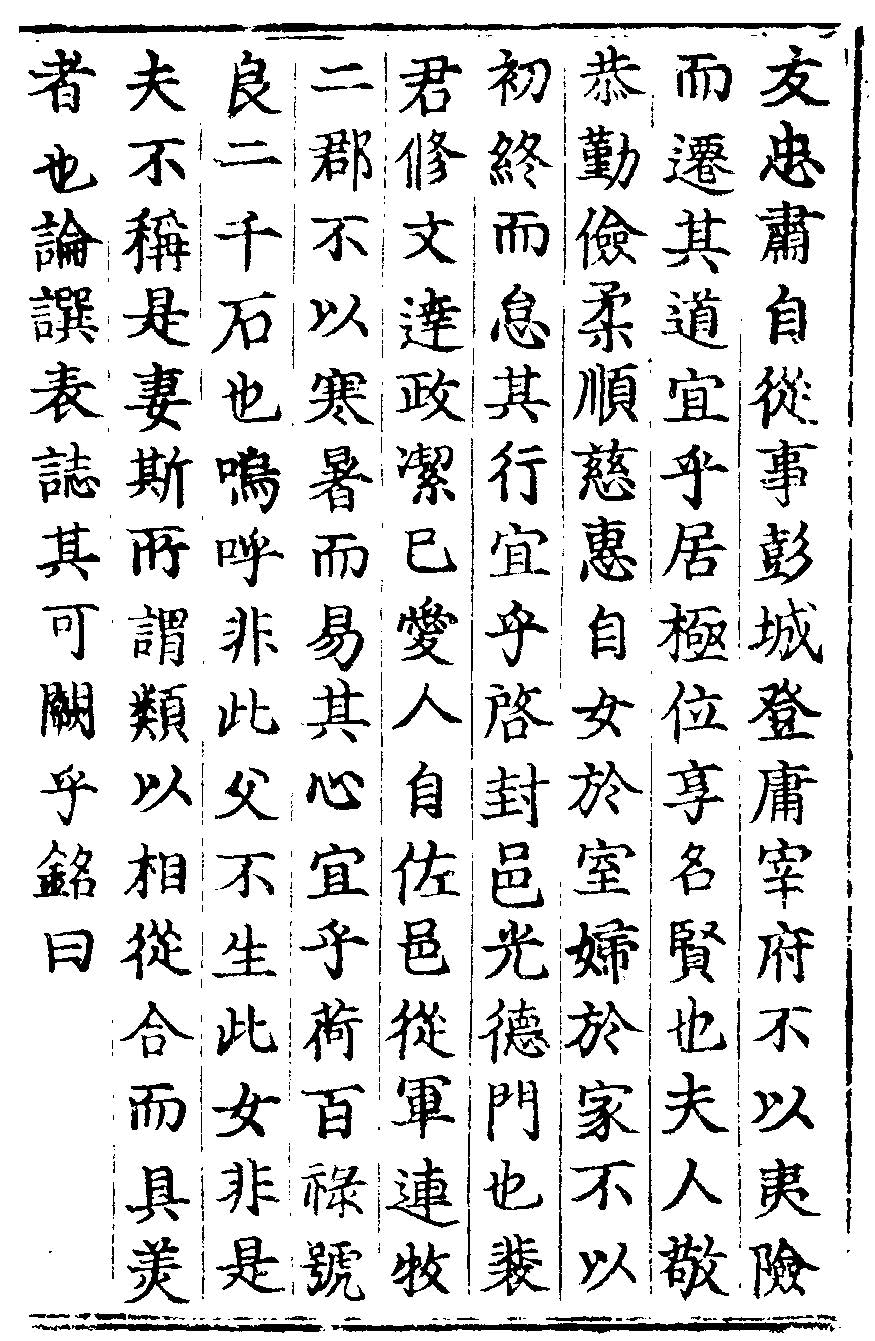 友忠肅自從事彭城登庸宰府不以夷險
而遷其道宜乎居極位享名賢也夫人敬
恭勤儉柔順慈惠自女於室婦於家不以
初終而怠其行宜乎啓封邑光德門也裴
君修文達政潔已愛人自佐邑從軍連牧
二郡不以寒暑而易其心宜乎荷百祿號
良二千石也嗚呼非此父不生此女非是
夫不稱是妻斯所謂類以相從合而具美
者也論譔表誌其可闕乎銘曰